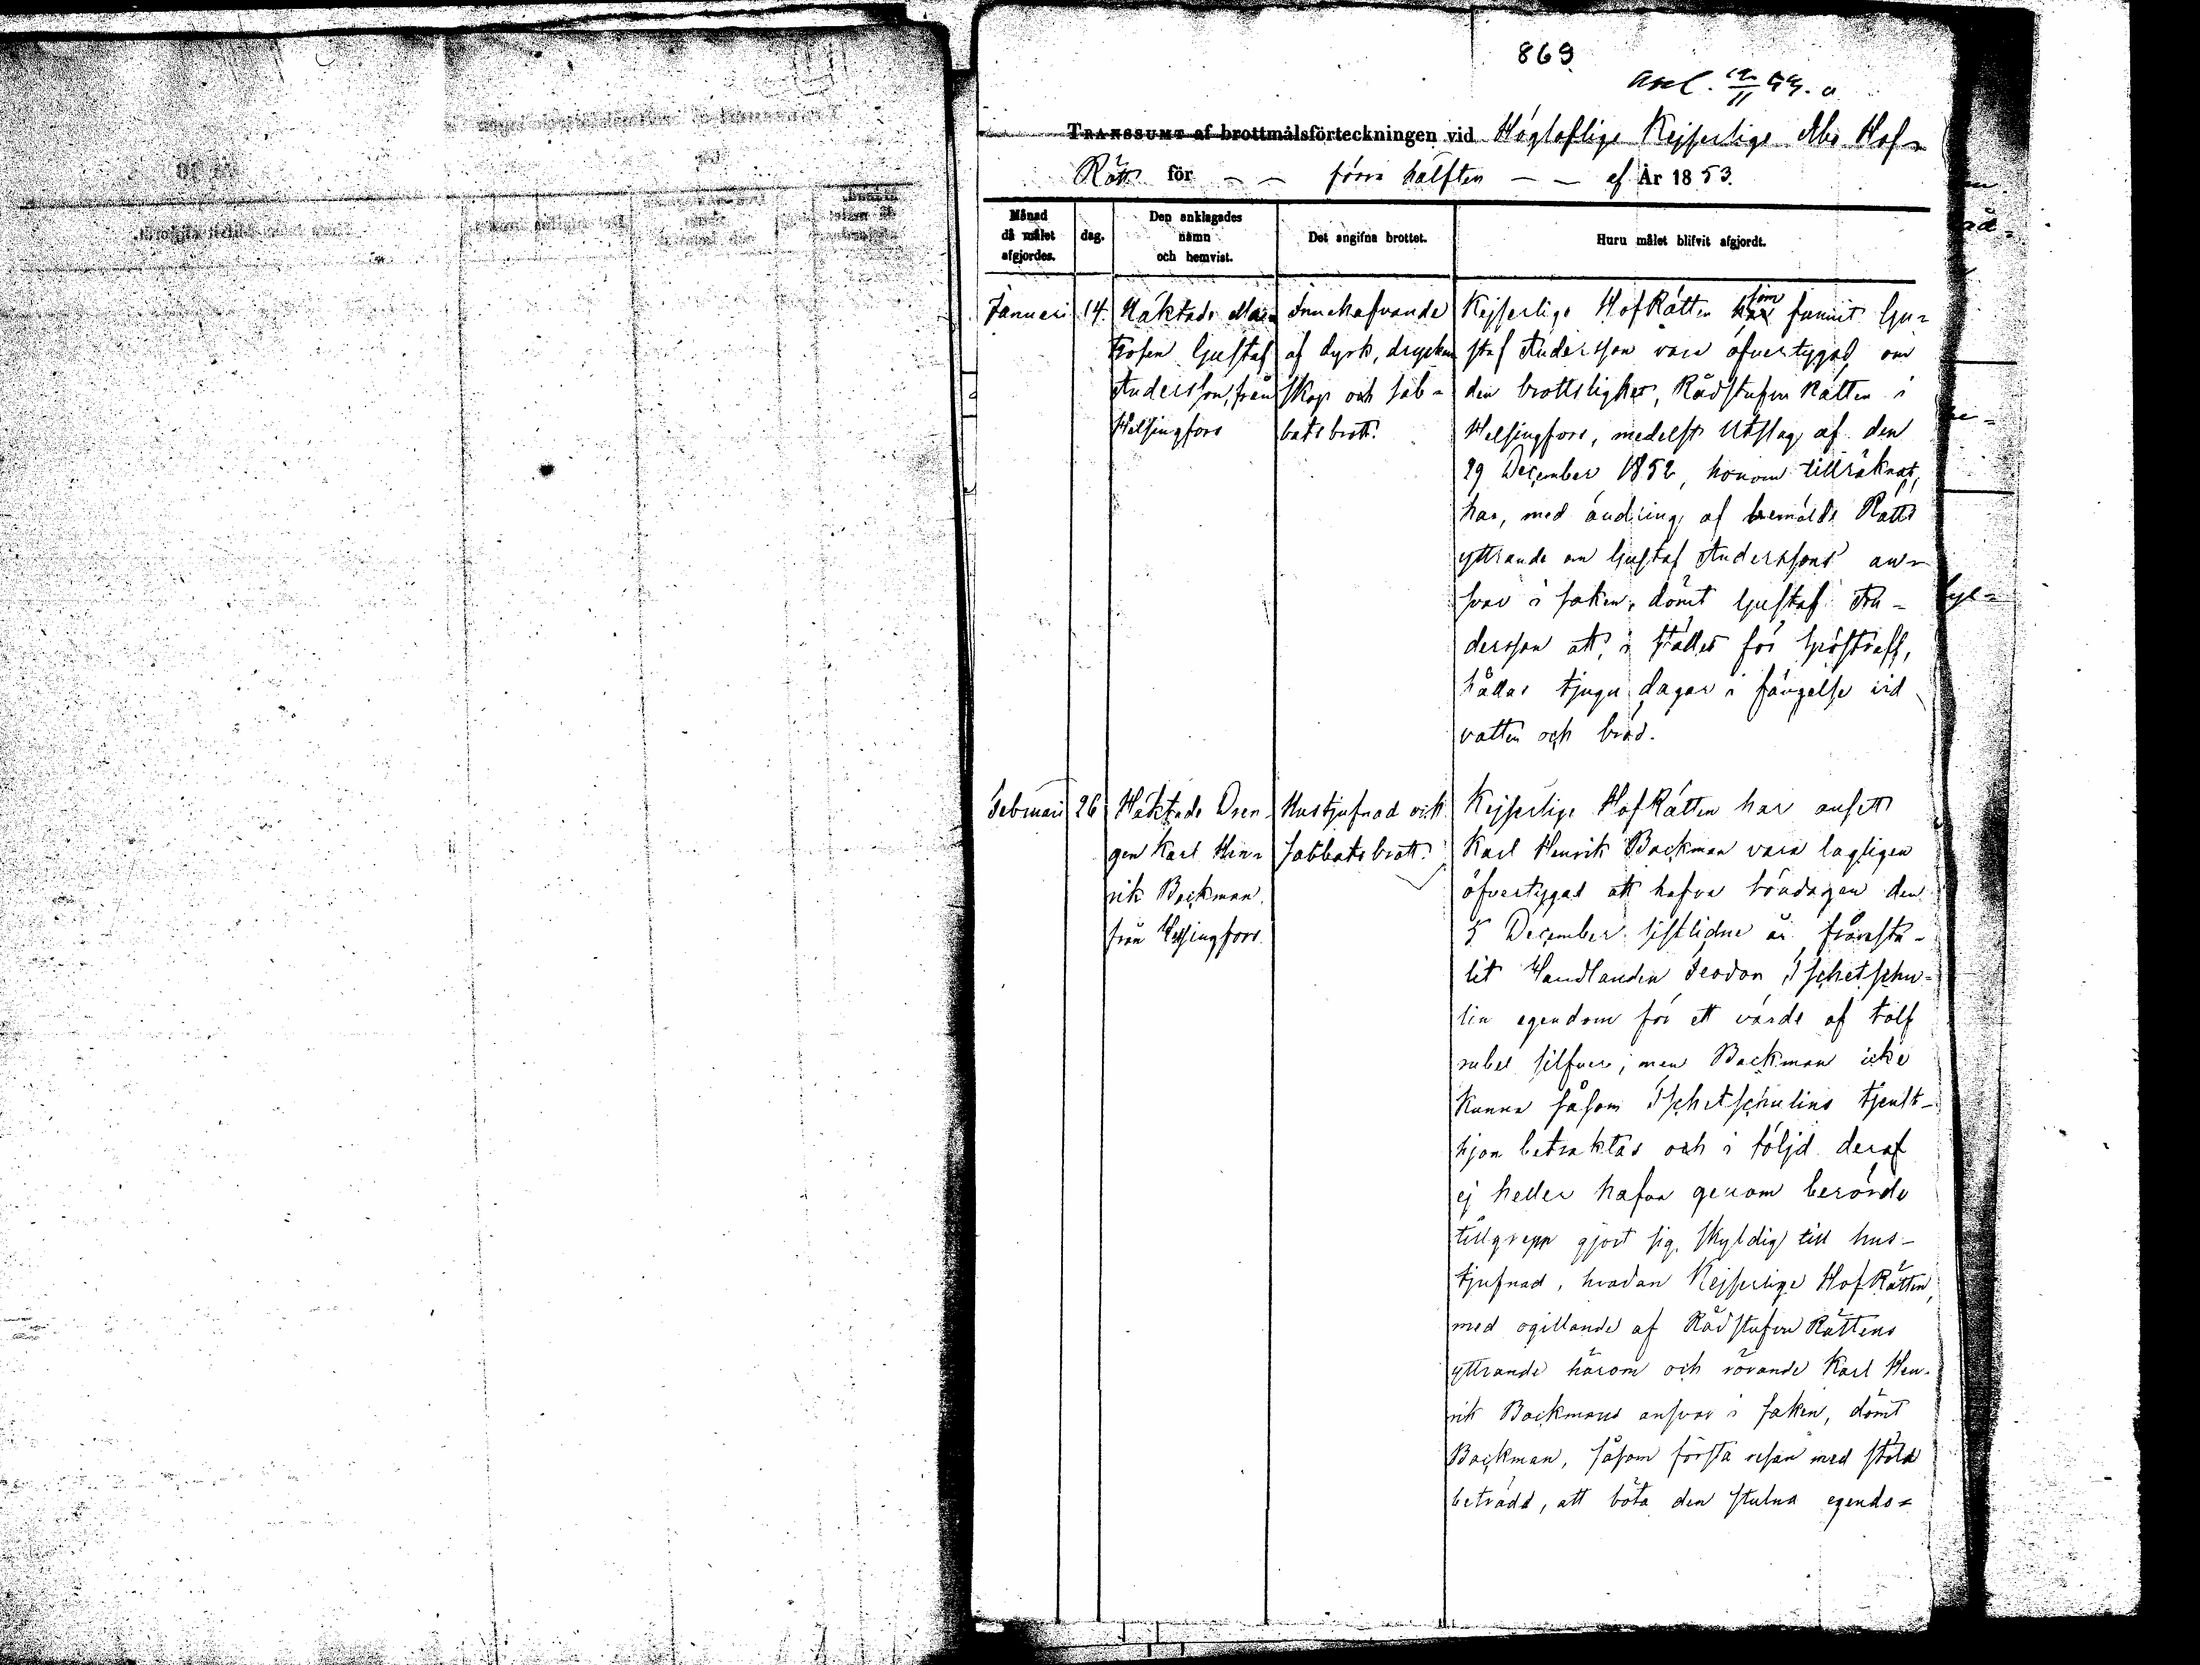 869.
Transsumt af brottmålsförteckningen vid Högloflige Kejserlige Åbo Hof-
Rätt för - - förra hälften - - af År 1853.
Månad då målet afgjordes.
dag.
Den anklagades namn och hemvist.
Det angifna brottet.
Huru målet blifvit afgjordt.
Januari
14.
Häktade Ma-
trosen Gustaf
Andersson, från
Helsingfors
Innehafvande
af dyrk, drycken
skap och sab-
batsbrott.
Kejserlige HofRätten som funnit Gu-
staf Andersson vara öfvertygad om
den brottslighet, RådstufvuRätten i
Helsingfors, medelst Utslag af den
29 December 1852, honom tillräknat,
har, med ändring af bemälde Rätts
yttrande om Gustaf Anderssons an-
svar i saken, dömt Gustaf An-
dersson att, i stället för spöstraff,
hållas tjugu dagar i fängelse vid
vatten och bröd.
Februari
26
Häktade Dren-
gen Karl Hen-
rik Backman
från Helsingfors.
Hustjufnad och
sabbatsbrott.
Kejserlige HofRätten har ansett
Karl Henrik Backman vara lagligen
öfvertygad att hafva söndagen den
5 December sistlidne år frånstu-
lit Handlanden Feodor Tschetschu-
lin egendom för ett värde af tolf
rubel silfver; men Backman icke
kunna såsom Tschetschulins tjenst-
hjon betraktas och i följd deraf
ej heller hafva genom berörde
tillgrepp gjort sig skyldig till hus-
tjufnad, hvadan Kejserlige HofRätten,
med ogillande af RådstufvuRättens
yttrande härom och rörande Karl Hen-
rik Backmans ansvar i saken, dömt
Backman, såsom första resan med stöld
beträdd, att böta den stulna egendo-